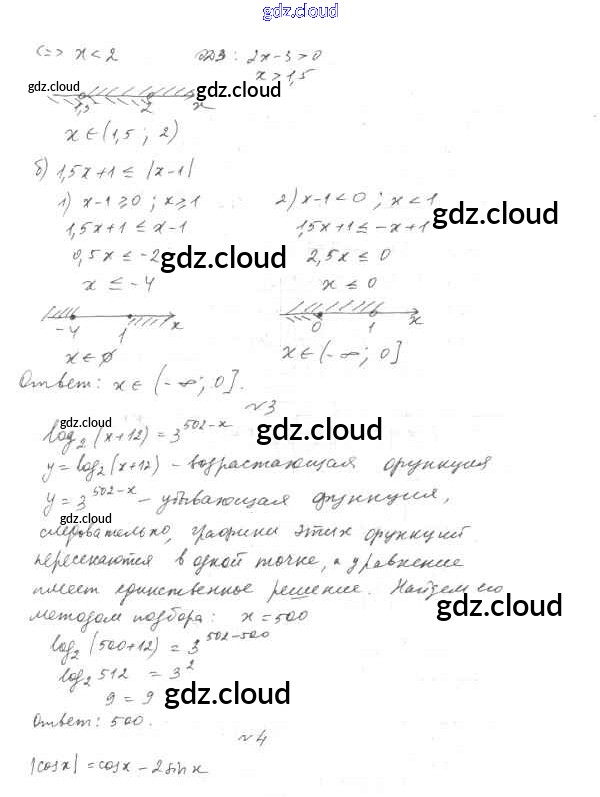 gdz.cloud
<=> x < 2 ОДЗ: 2x-3>0
x > 1,5
gdz.cloud gdz.cloud
1,5 2 x
x∈(1,5; 2)
б) 1,5x+1 ≤ |x-1|
1) x-1≥0; x≥1 2) x-1<0; x<1
gdz.cloud
1,5x+1 ≤ x-1 1,5x+1 ≤ -x+1
0,5x ≤ -2 2,5x ≤ 0
gdz.cloud
x ≤ -4 x ≤ 0
-4 1 x 0 1 x
x∈ ∅ x∈(-∞; 0]
Ответ: x∈(-∞; 0].
№3
gdz.cloud gdz.cloud
log₂(x+12) = 3^{502-x}
y = log₂(x+12) - возрастающая функция
gdz.cloud
y = 3^{502-x} - убывающая функция,
gdz.cloud
следовательно, графики этих функций
пересекаются в одной точке, и уравнение
имеет единственное решение. Найдем его
gdz.cloud
методом подбора: x = 500
log₂(500+12) = 3^{502-500}
log₂ 512 = 3²
gdz.cloud
9 = 9
Ответ: 500.
№4
|cosx| = cosx - 2sinx